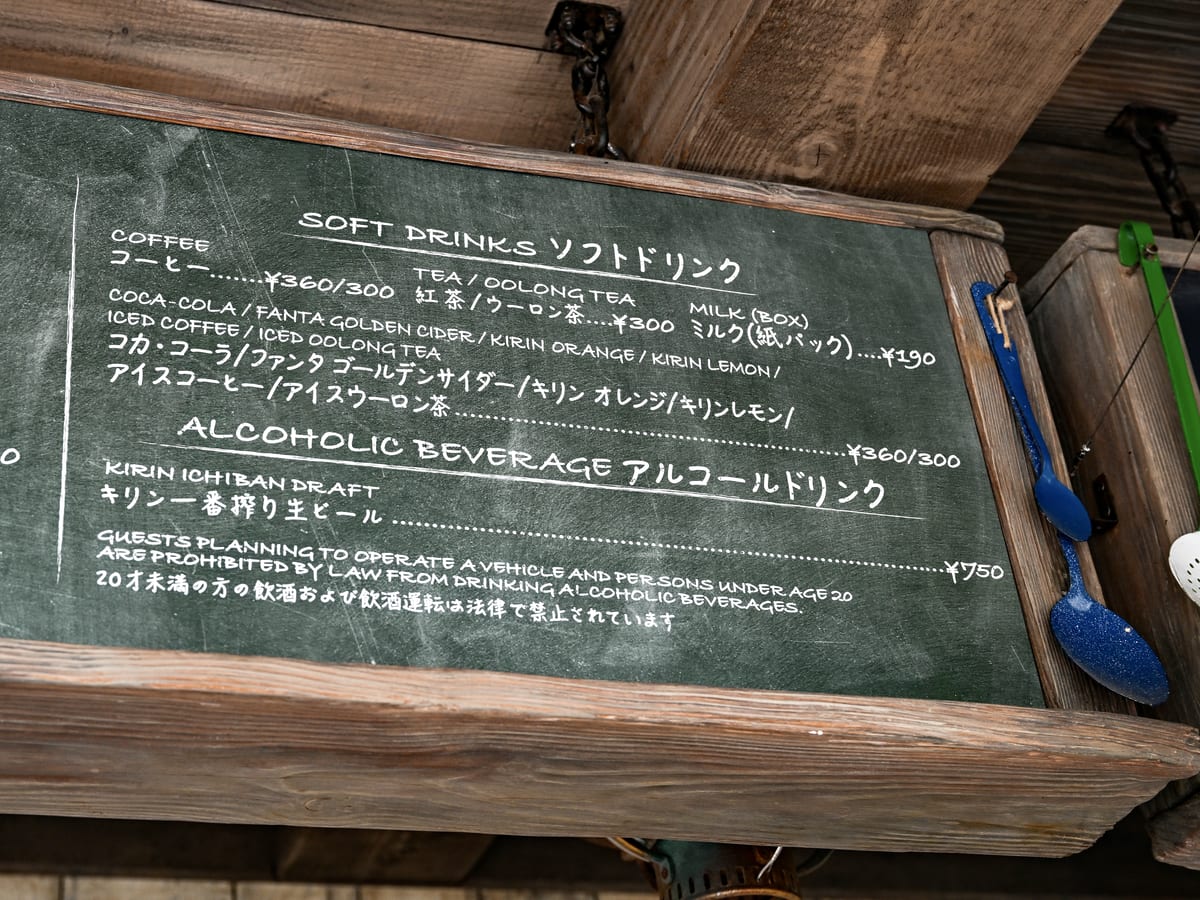 0
SOFT DRINKS ソフトドリンク
COFFEE
コーヒー......¥360/300
TEA / OOLONG TEA
紅茶/ウーロン茶....¥300
MILK (BOX)
ミルク(紙パック)....¥190
COCA-COLA / FANTA GOLDEN CIDER / KIRIN ORANGE / KIRIN LEMON /
ICED COFFEE / ICED OOLONG TEA
コカ・コーラ/ファンタ ゴールデンサイダー/キリン オレンジ/キリンレモン/
アイスコーヒー/アイスウーロン茶..........¥360/300
ALCOHOLIC BEVERAGE アルコールドリンク
KIRIN ICHIBAN DRAFT
キリン一番搾り生ビール..........¥750
GUESTS PLANNING TO OPERATE A VEHICLE AND PERSONS UNDER AGE 20
ARE PROHIBITED BY LAW FROM DRINKING ALCOHOLIC BEVERAGES.
20才未満の方の飲酒および飲酒運転は法律で禁止されています